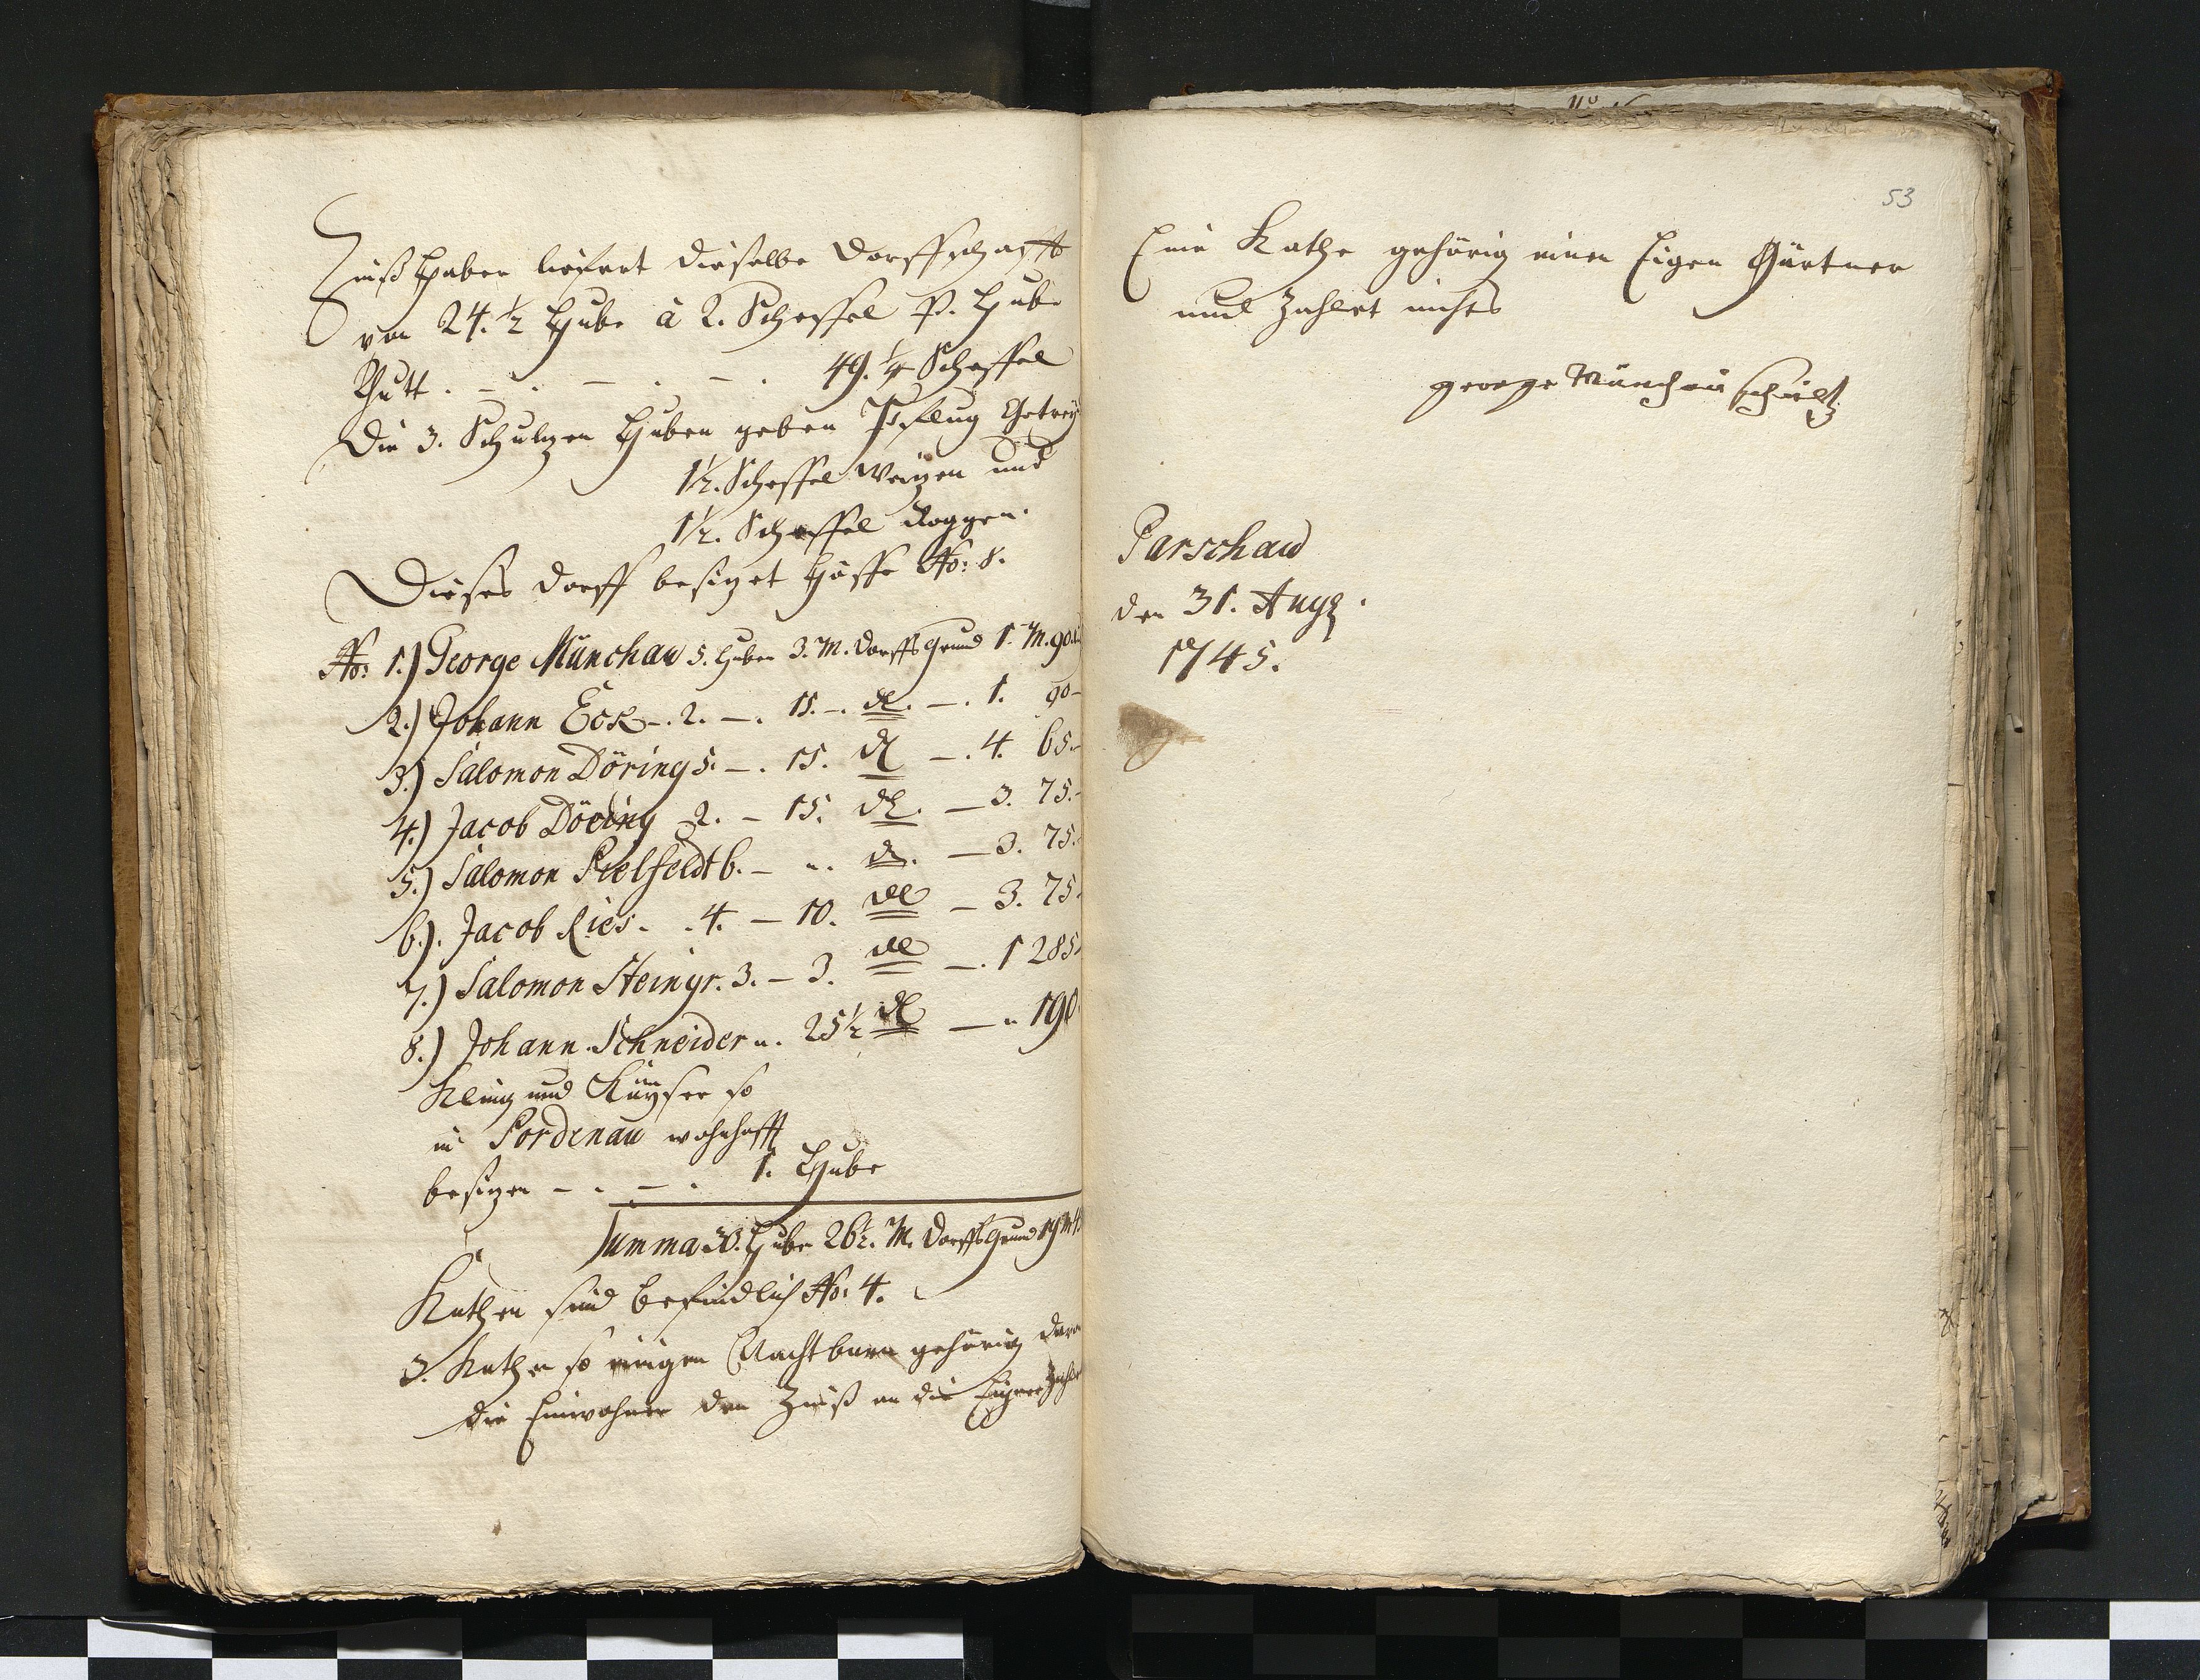 Zinß Haber liefert dieselbe Dorffschafft
von 24. ½ Hube à 2. Scheffel P. Hube
thutt . – . – . – . 49. ¼ Scheffel
Die 3. Schulzen Huben geben Pflug Getrey
1½. Scheffel Weizen und
1½. Scheffel Roggen.
Dieses Dorff besizet Höffe No: 8.
No: 1.) George Münchau 5. Huben 3. M. Dorffs Grund 1. M. 90
2.) Johann Eck –. 2. –. 15. –. dl. –. 1. 90 –
3.) Salomon Döring 5. –. 15. dl –. 4. 65. –
4.) Jacob Döring 2. – 15. dl. – 3. 75. –
5.) Salomon Pielfeldt 6. – „. dl. – 3. 75.
6.). Jacob Ries. . 4. – 10. dl – 3. 75.
7.) Salomon Steingr. 3. – 3. dl –. 1 285.
8.) Johann Schneider „. 25½ dl – „ 190
Kling und Käyser so
in Pordenau wohnhafft
besizen – . – . 1. Hube
Summa 30. Hube 26½. M. Dorffs Grund 19 M
Kathen sind befindlich No: 4.
3. Kathen so einigen Nachtbarn gehörig
die Einwohner den Zinß an die Eigner Zahle
53
Eine Kathe gehörig einen Eigen Gärtner
und Zahlet nichts
george Münchau schultz
Parschau
den 31. Aug.
1745.